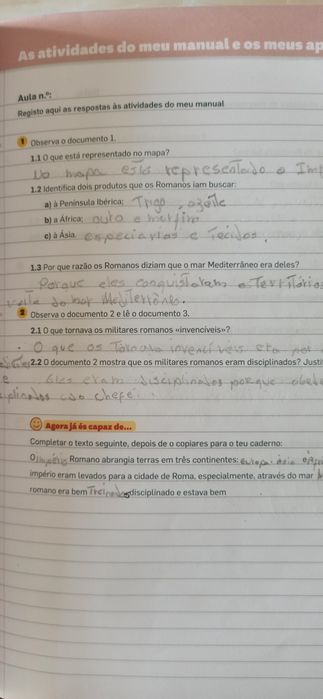 As atividades do meu manual e os meus ap
Aula n.º:
Registo aqui as respostas às atividades do meu manual
1 Observa o documento 1.
1.1 O que está representado no mapa?
No mapa está representado o Imp
1.2 Identifica dois produtos que os Romanos iam buscar:
a) à Península Ibérica; Trigo, azeite
b) a África; ouro e marfim
c) à Ásia. especiarias e Tecidos.
1.3 Por que razão os Romanos diziam que o mar Mediterrâneo era deles?
Porque eles conquistaram o Território
volta do mar Mediterrâneo.
2 Observa o documento 2 e lê o documento 3.
2.1 O que tornava os militares romanos «invencíveis»?
O que os Tornava invencíveis era
2.2 O documento 2 mostra que os militares romanos eram disciplinados? Justi
e Eles eram disciplinados porque
chefe.
Agora já és capaz de...
Completar o texto seguinte, depois de o copiares para o teu caderno:
O império Romano abrangia terras em três continentes: europa ásia
império eram levados para a cidade de Roma, especialmente, através do mar
romano era bem Treinado disciplinado e estava bem